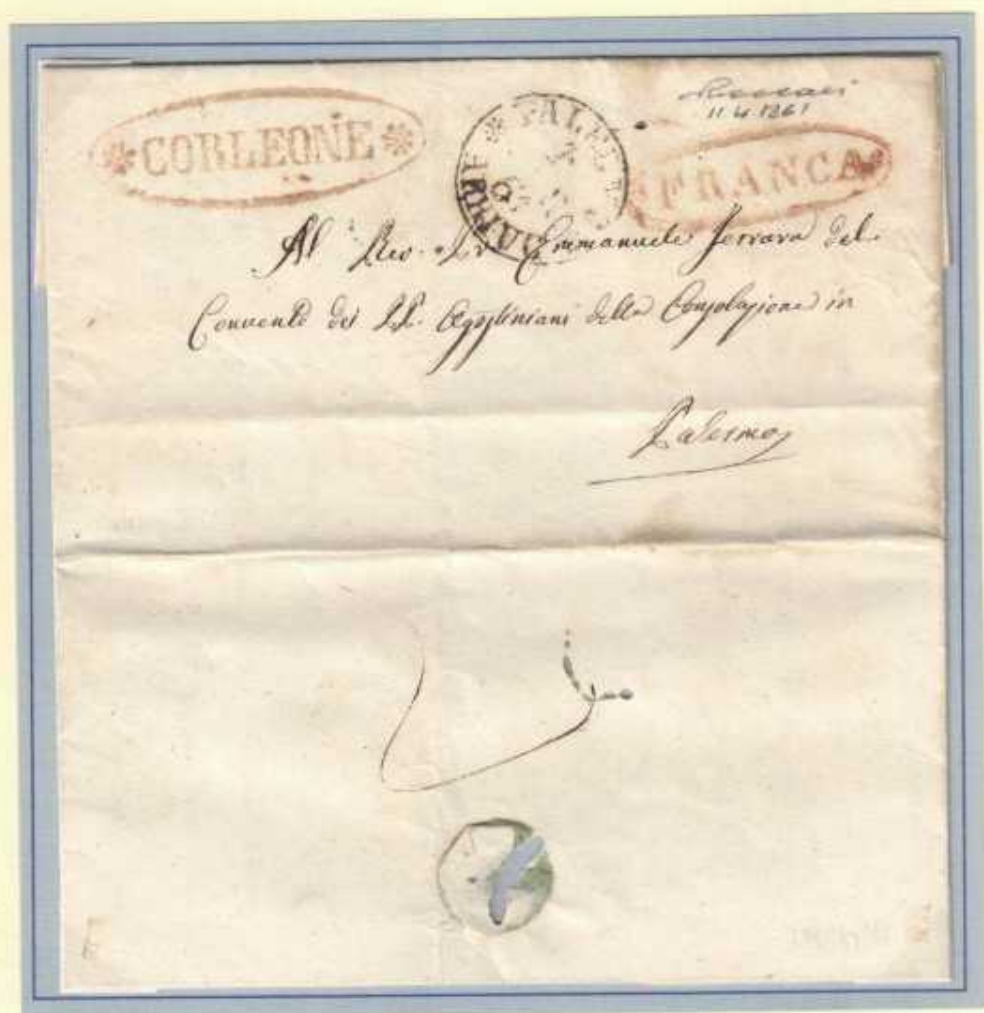 CORLEONE
PALERMO
ARRIVO
11.4.1861
FRANCA
Al Rev. Emmanuele Ferrara del
Convento dei PP. Agostiniani della Consolazione in
Palermo